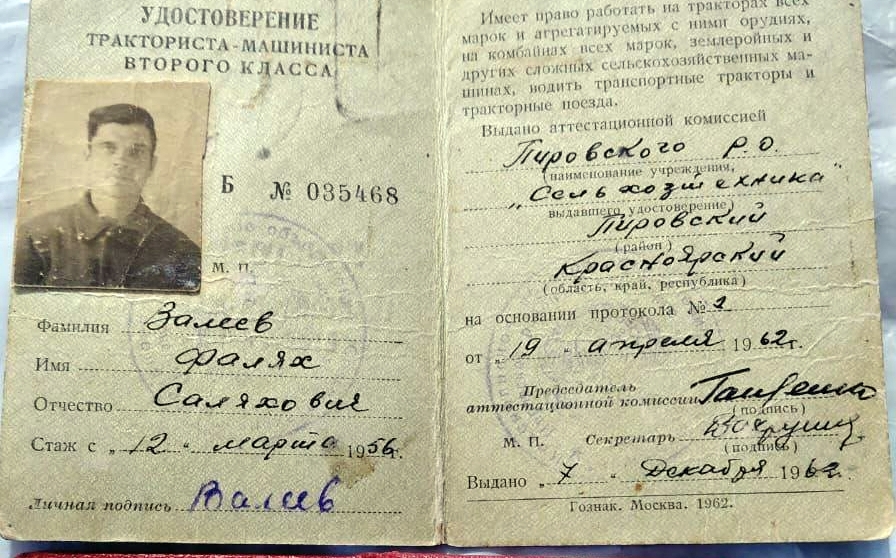 УДОСТОВЕРЕНИЕ
ТРАКТОРИСТА-МАШИНИСТА
ВТОРОГО КЛАССА
Б № 035468
М. П.
Фамилия Валеев
Имя Фалях
Отчество Саляхович
Стаж с „12 “ марта 1956г.
Личная подпись Валеев
Имеет право работать на тракторах всех
марок и агрегатируемых с ними орудиях,
на комбайнах всех марок, землеройных и
других сложных сельскохозяйственных ма-
шинах, водить транспортные тракторы и
тракторные поезда.
Выдано аттестационной комиссией
Пировского Р.О.
(наименование учреждения,
„Сельхозтехника“
выдавшего удостоверение)
Пировский
(район)
Красноярский
(область, край, республика)
на основании протокола № 2
от „19 “ апреля 1962г.
Председатель
аттестационной комиссии
(подпись)
М. П. Секретарь
(подпись)
Выдано „7 “ Декабря 1962.
Гознак. Москва. 1962.